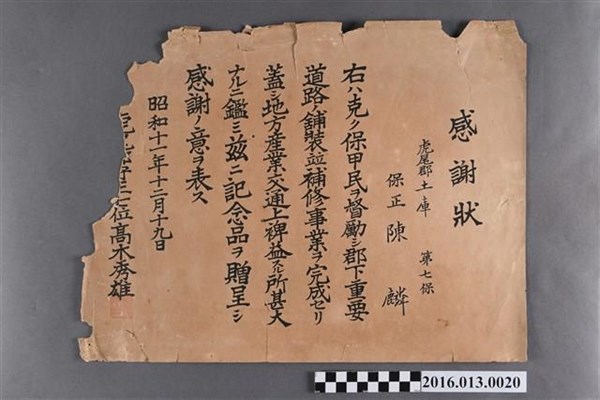 感謝狀
虎尾郡土庫 第七保
保正 陳麟
右ハ克ク保甲民ヲ督勵シ郡下重要
道路ノ舖裝竝補修ノ事業ヲ完成セリ
蓋シ地方産業交通上裨益スル所甚大
ナルニ鑑ミ茲ニ記念品ヲ贈呈シ
感謝ノ意ヲ表ス
昭和十一年十二月十九日
位髙木秀雄
2016.013.0020